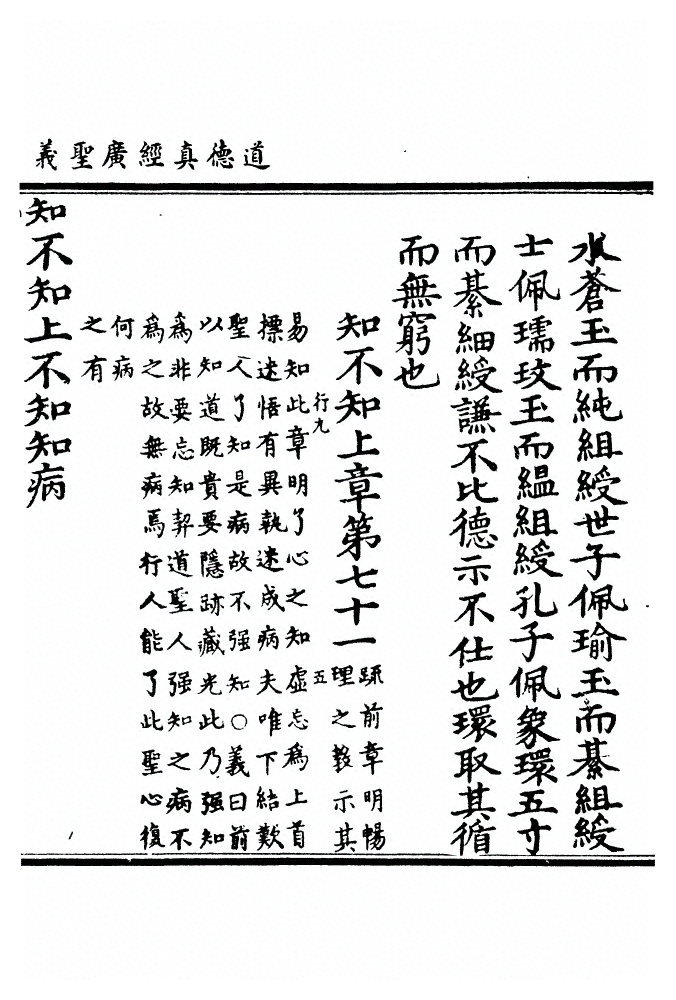 道德真經廣聖義
水蒼玉而純組綬世子佩瑜玉而綦組綬
士佩瓀玟玉而縕組綬孔子佩象環五寸
而綦細綬謙不比德示不仕也環取其循
而無窮也
知不知上章第七十一
疏前章明暢
理之教示其
行九
五
易知此章明了心之知虛忘爲上首
摽迷悟有異執迷成病夫唯下結歎
聖人了知是病故不强知○義曰前
以知道既貴要隱跡藏光此乃强知
爲非要忘知契道聖人强知之病不
爲之故無病焉行人能了此聖心復
何病
之有
知不知上不知知病